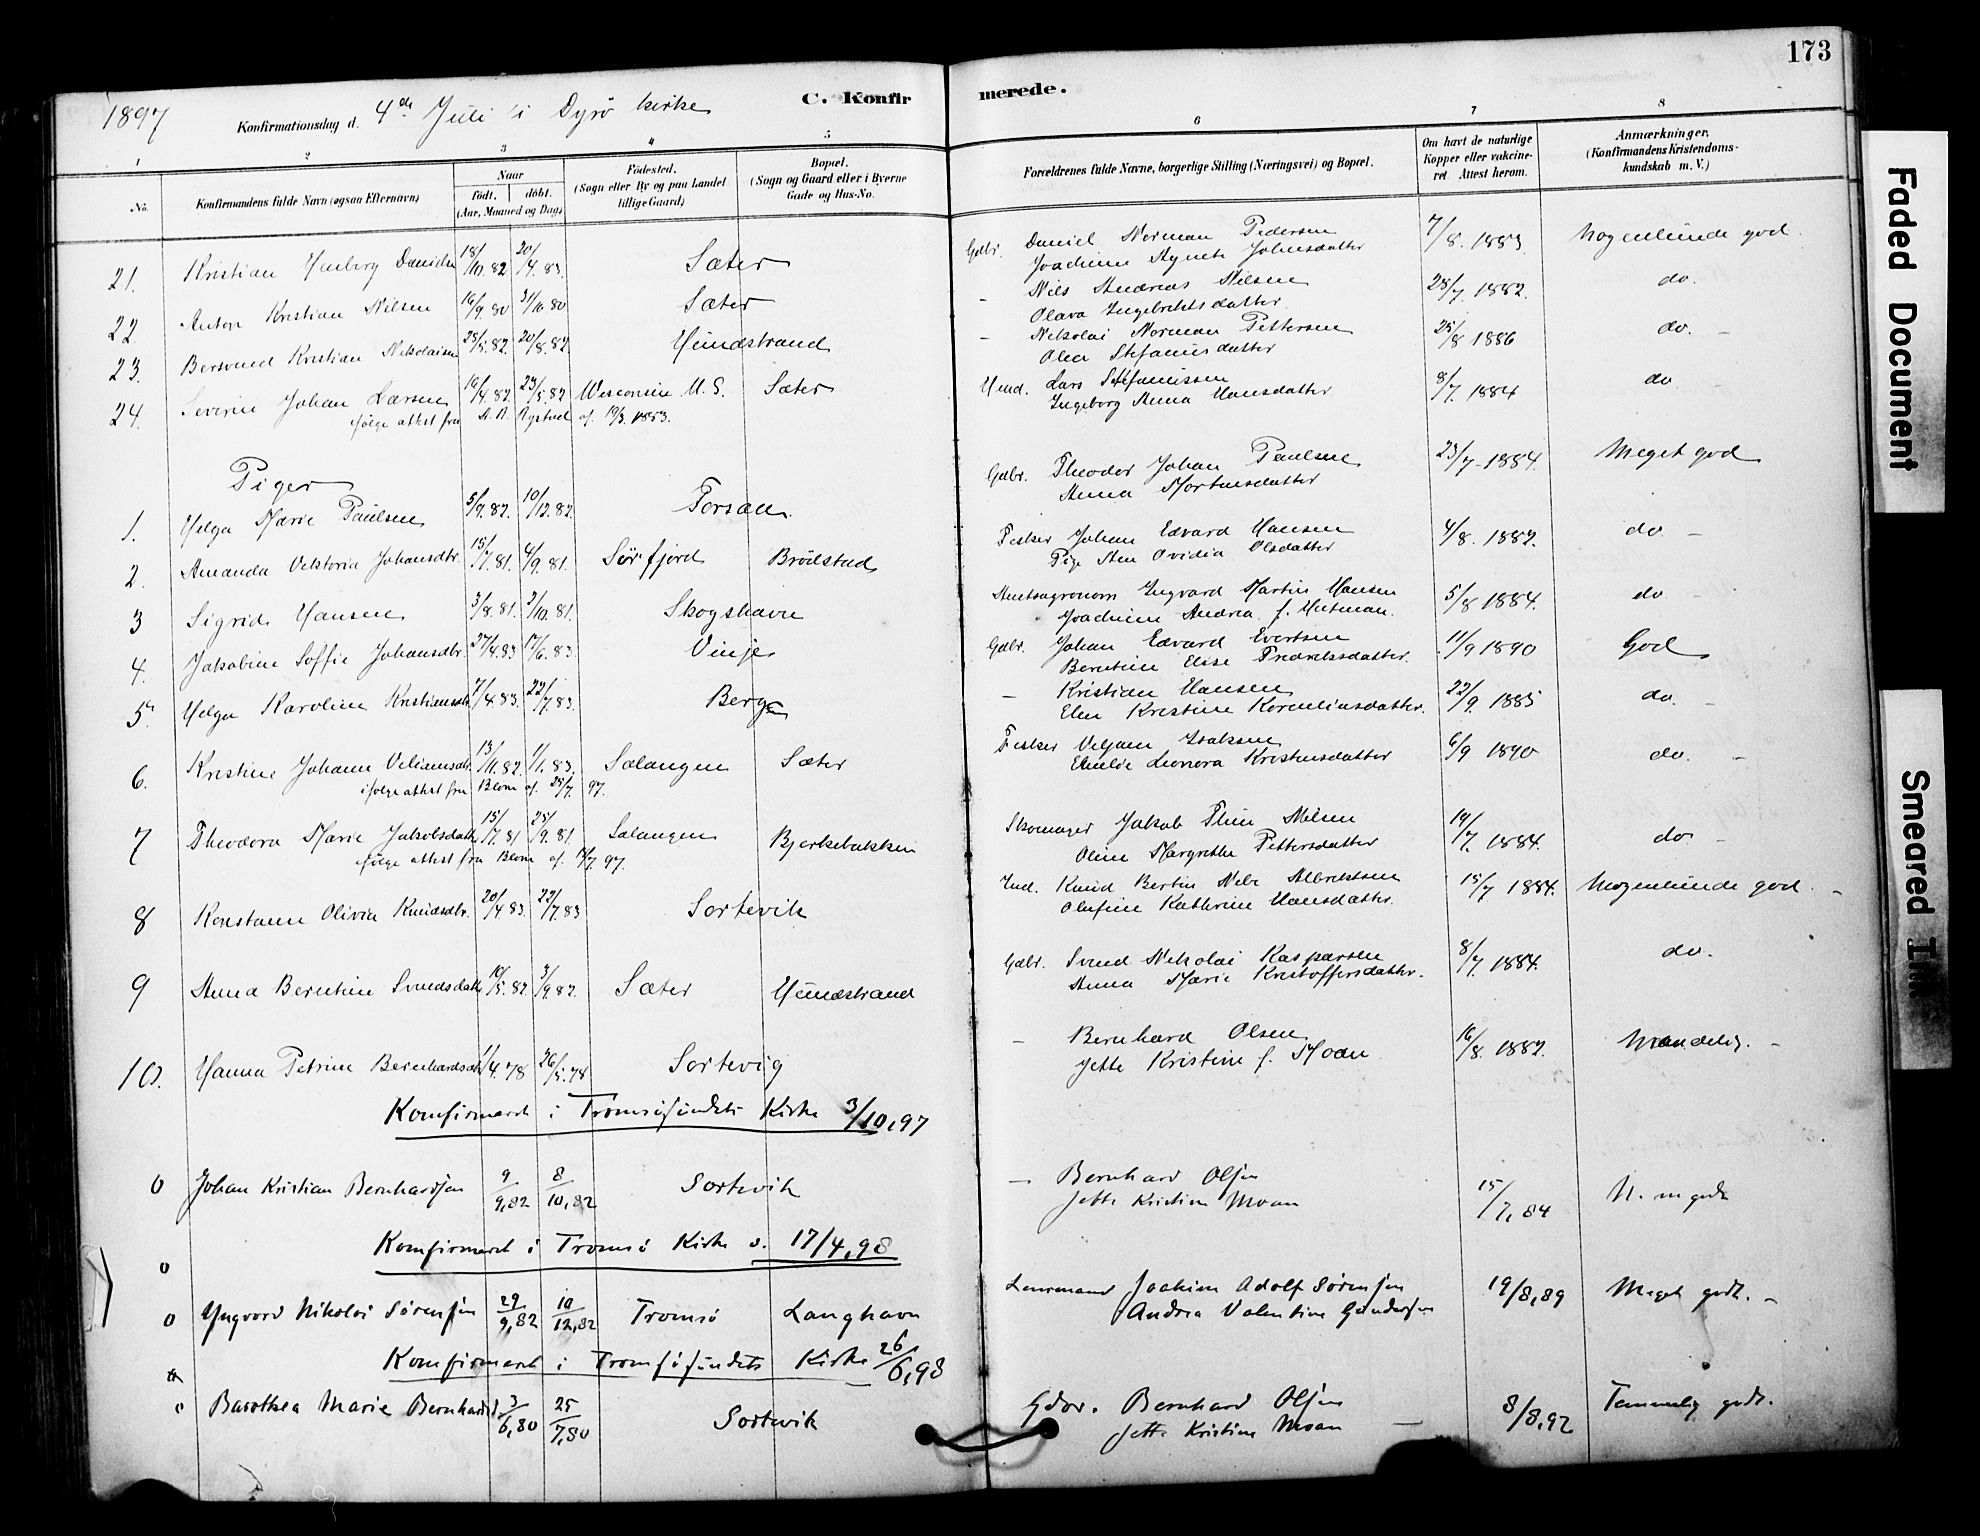 173
1897
Konfirmationsdag d. 4de Juli i Dyrø kirke
C. Konfirmerede.
1 2 3 4 5 6 7 8
No.
Konfirmandens fulde Navn (ogsaa Efternavn)
Naar
Födt. döbt.
(Aar, Maaned og Dag)
Födested.
(Sogn eller By og paa Landet
tillige Gaard)
Bopæl.
(Sogn og Gaard eller i Byerne
Gade og Hus-No.
Forældrenes fulde Navne, borgerlige Stilling (Næringsvei) og Bopæl.
Om havt de naturlige
Kopper eller vakcine-
ret. Attest herom.
Anmærkninger.
(Konfirmandens Kristendoms-
kundskab m. V.)
21. Kristian Danielsen 18/10.82 20/4.83. Sæter Gdbr. Daniel Norman Pedersen 7/8. 1883 Nogenlunde god.
Joachime Agnete Johnsdatter
22 Anton Kristian Nilsen 16/9.80 31/10.80 Sæter - Nils Andreas Nilsen 28/7. 1882. do.
Olava Ingebrigtsdatter
23. Bersvend Kristian Nikolaisen 25/5.82. 20/8.82. Hundstrand - Nikolai Norman Pettersen 25/8 1886 do. -
Olea Stefanusdatter
24. Severin Johan Larsen 16/4.82. 23/5.82 Wisconsin U.S. Sæter Lars Stefanissen 8/7. 1884 do
ifølge attest fra A. N. Rystad af 19/3. 1883. Ingeborg Anna Hansdatter
Piger
1. Helga Marie Paulsen 5/9.82. 10/12.82. Forsaa. Gdbr. Theodor Johan Paulsen 23/7 1884. Meget god
Anna Mortensdatter
2. Amanda Viktoria Johansdtr. 15/7.81. 4/9.81. Sørfjord Brøstad Fisker Johan Edvard Hansen 4/8. 1882. do. -
Pige Ane Ovidia Olsdatter
3 Sigrid Hansen 3/8.81. 2/10.81. Skogshavn Amtsagronom Ingvard Martin Hansen 5/8 1884. do -
Joachime Andrea f. Hutman.
4. Jakobine Soffie Johansdtr. 27/4.83 17/6.83 Vinje Gdbr. Johan Edvard Evertsen 11/9 1890 God
Berntine Elise Fredriksdatter.
5. Helga Karoline Kristiansdtr. 7/4.83. 22/7.83. Berg - Kristian Hansen 22/9. 1885 do. -
Elen Kristine Korneliusdatter.
6. Kristine Johanna Viliamsdtr. 13/11.82. 1/1.83. Salangen Sæter Fisker Viljam Isaksen 6/9 1890 do. -
ifølge attest fra Blom af. 25/7. 97. Emilie Leonora Kristensdatter
7 Theodora Marie Jakobsdatter 15/7.81 25/9.81. Salangen Bjerkebakken Skomager Jakob Thiis Nilsen 19/7. 1884. do -
ifølge attest fra Blom af. 17/7 97. Oline Margrethe Pettersdatter
8 Konstanse Olivia Knudsdtr. 20/4.83. 22/7.83 Sortevik Ind. Knud Bertin Nils Albriktsen 15/7 1884. Nogenlunde god. -
Olufine Kathrine Hansdatter.
9 Anna Berntine Svendsdatter 10/5.82 3/9.82. Sæter Hundstrand Gdbr. Svend Nikolai Kaspersen 8/7. 1884. do.
Anna Marie Kristoffersdatter.
10. Hanna Petrine Bernhardsdtr. 1/4.78 26/5.78 Sortevig - Bernhard Olsen 16/8. 1882. Maadelig. -
Jette Kristine f. Moan
Konfirmeret i Tromsøsundets Kirke 3/10,97
0 Johan Kristian Bernhardsen 9/9,82 8/10,82 Sortevik - Bernhard Olsen 15/7,84 N. m godt
Jette Kristine Moan
Konfirmeret i Tromsø Kirke d. 17/4,98
0
0 Yngvard Nikolai Sørensen 29/9,82 10/12,82 Tromsø Langhavn Lensmand Joakim Adolf Sørensen 19/8,89 Meget godt. -
Andrea Valentine Gundersen
Konfirmeret i Tromsøsundets Kirke 26/6,98
0 Barothea Marie Bernhardsd 3/6,80 25/7,80 Sortevik Gdbr. Bernhard Olsen 8/8,92 Temmelig godt.
Jette Kristine Moan -
Faded Document
Smeared Ink